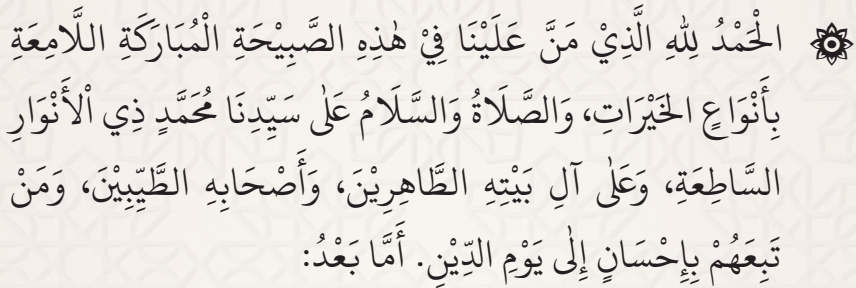 الْحَمْدُ لِلّٰهِ الَّذِيْ مَنَّ عَلَيْنَا فِيْ هٰذِهِ الصَّبِيْحَةِ الْمُبَارَكَةِ اللَّامِعَةِ
بِأَنْوَاعِ الخَيْرَاتِ، وَالصَّلَاةُ وَالسَّلَامُ عَلٰى سَيِّدِنَا مُحَمَّدٍ ذِي اْلأَنْوَارِ
السَّاطِعَةِ، وَعَلٰى آلِ بَيْتِهِ الطَّاهِرِيْنَ، وَأَصْحَابِهِ الطَّيِّبِيْنَ، وَمَنْ
تَبِعَهُمْ بِإِحْسَانٍ إِلٰى يَوْمِ الدِّيْنِ. أَمَّا بَعْدُ: